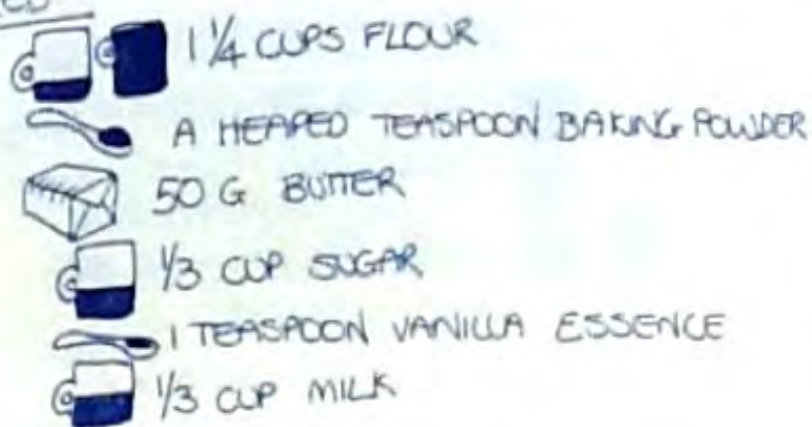 1 1/4 CUPS FLOUR
A HEAPED TEASPOON BAKING POWDER
50 G BUTTER
1/3 CUP SUGAR
1 TEASPOON VANILLA ESSENCE
1/3 CUP MILK